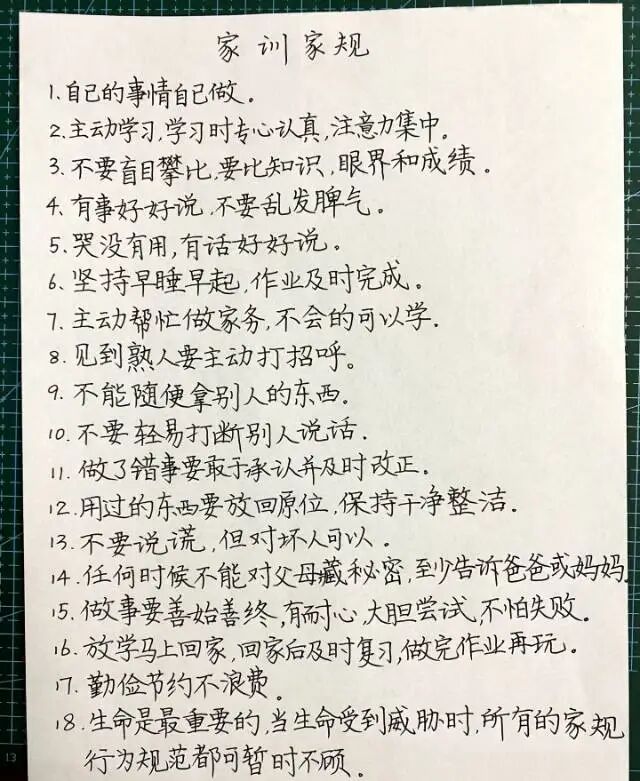 家训家规
1.自己的事情自己做。
2.主动学习,学习时专心认真,注意力集中。
3.不要盲目攀比,要比知识,眼界和成绩。
4.有事好好说,不要乱发脾气。
5.哭没有用,有话好好说。
6.坚持早睡早起,作业及时完成。
7.主动帮忙做家务,不会的可以学.
8.见到熟人要主动打招呼。
9.不能随便拿别人的东西.
10.不要轻易打断别人说话.
11.做了错事要敢于承认并及时改正.
12.用过的东西要放回原位,保持干净整洁.
13.不要说谎,但对坏人可以.
14.任何时候不能对父母藏秘密,至少告诉爸爸或妈妈.
15.做事要善始善终,有耐心,大胆尝试,不怕失败.
16.放学马上回家,回家后及时复习,做完作业再玩。
17.勤俭节约不浪费.
18.生命是最重要的,当生命受到威胁时,所有的家规
行为规范都可暂时不顾.
13